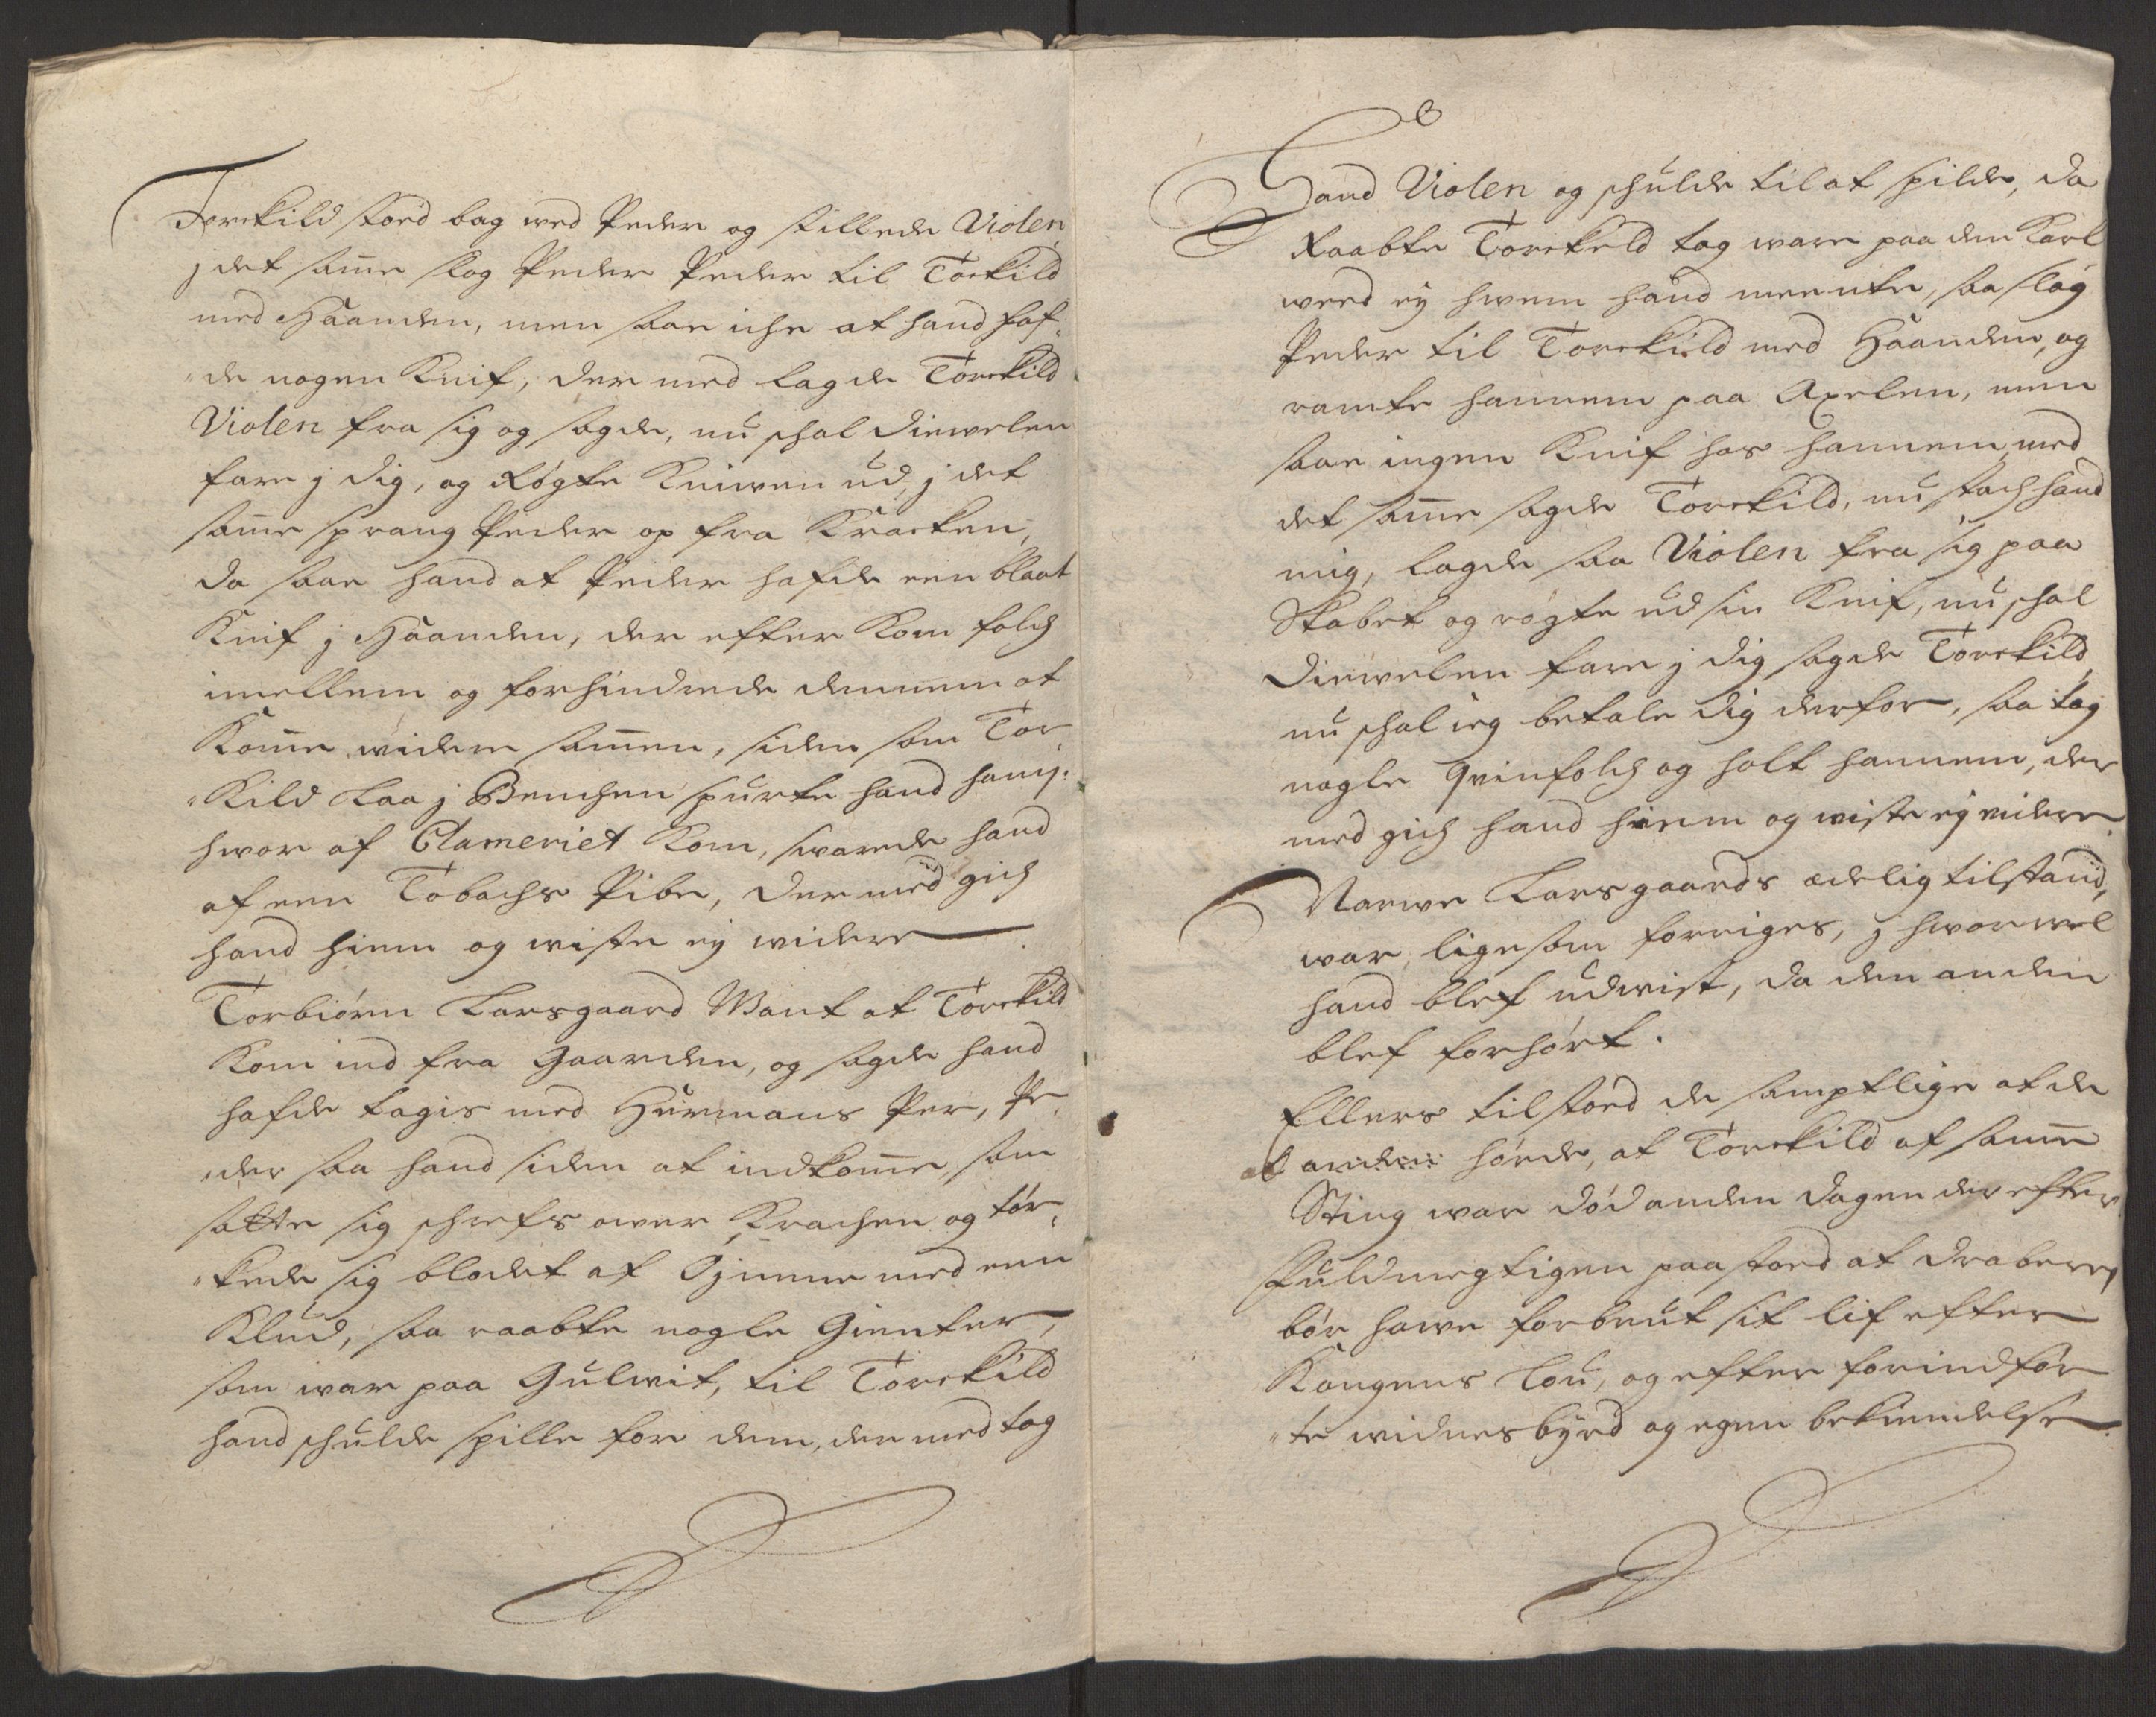 Torckild stoed bag wed Peder og stillede Violen
j det same slog Peder Peder til Torkild
med Haanden, men saae iche at hand haf¬
de nogen Knif, der med lagde Torckild
Violen fra sig og sagde, nu schal Dievelen
fare j dig, og Røgte Kniwen ud, j det
same sprang Peder op fra Kracken,
da saae hand at Peder hafde een blaat
Knif j Haanden, der efter Kom folch
imellem og forhindrede dennem at
Kome widere samen, siden som Tor¬
Kild Laa j Benchen spurte hand ham:
hwor af Clameriet Kom, swarede hand
af een Tobachs Pibe, der med gich
hand hiem og wiste ey widere
Torbiørn Larsgaard Want at Torckild
Kom ind fra Gaarden, og sagde hand
hafde tagis med Hurmans Per, Pe¬
der saa hand siden at indkome, som
satte sig schrefs ower Krachen og tør¬
kede sig blodet af Øjnene med een
Klud, saa raabte nogle Gienter,
som war paa Gulwit, til Torckild
hand schulde spille for dem, der med tog
Hand Violen og schulde til at spilde, da
Raabte Torckeld tag ware paa den Karl
weed ey hwem hand meente, saa slog
Peder til Torckild med Haanden, og
ramte hannem paa Axelen, men
saae ingen Knif hos hannem, med
det same sagde Torckild, nu stach hand
mig, lagde saa Violen fra sig paa
Skabet og røgte ud sin Knif, nu schal
Diewelen fare j dig sagde Torckild
nu schal ieg betale dig derfor, saa tog
nogle Qvinfolch og holt hannem, der
med gich hand hiem og wiste ey widere.
Narwe Larsgaards edelig tilstand,
war ligesom forriges, j hworwel
hand blef udwist, da den anden
blef forhørt.
Ellers tilstoed de samptlige at de
af anden hørde, at Torckild af same
Sting war død anden dagen der efter.
Fuldmegtigen paastoed at draberen
bør hawe forbrut sit lif efter
Kongens Lou, og efter forindfør
te widnesbyrd og egen bekiendelse